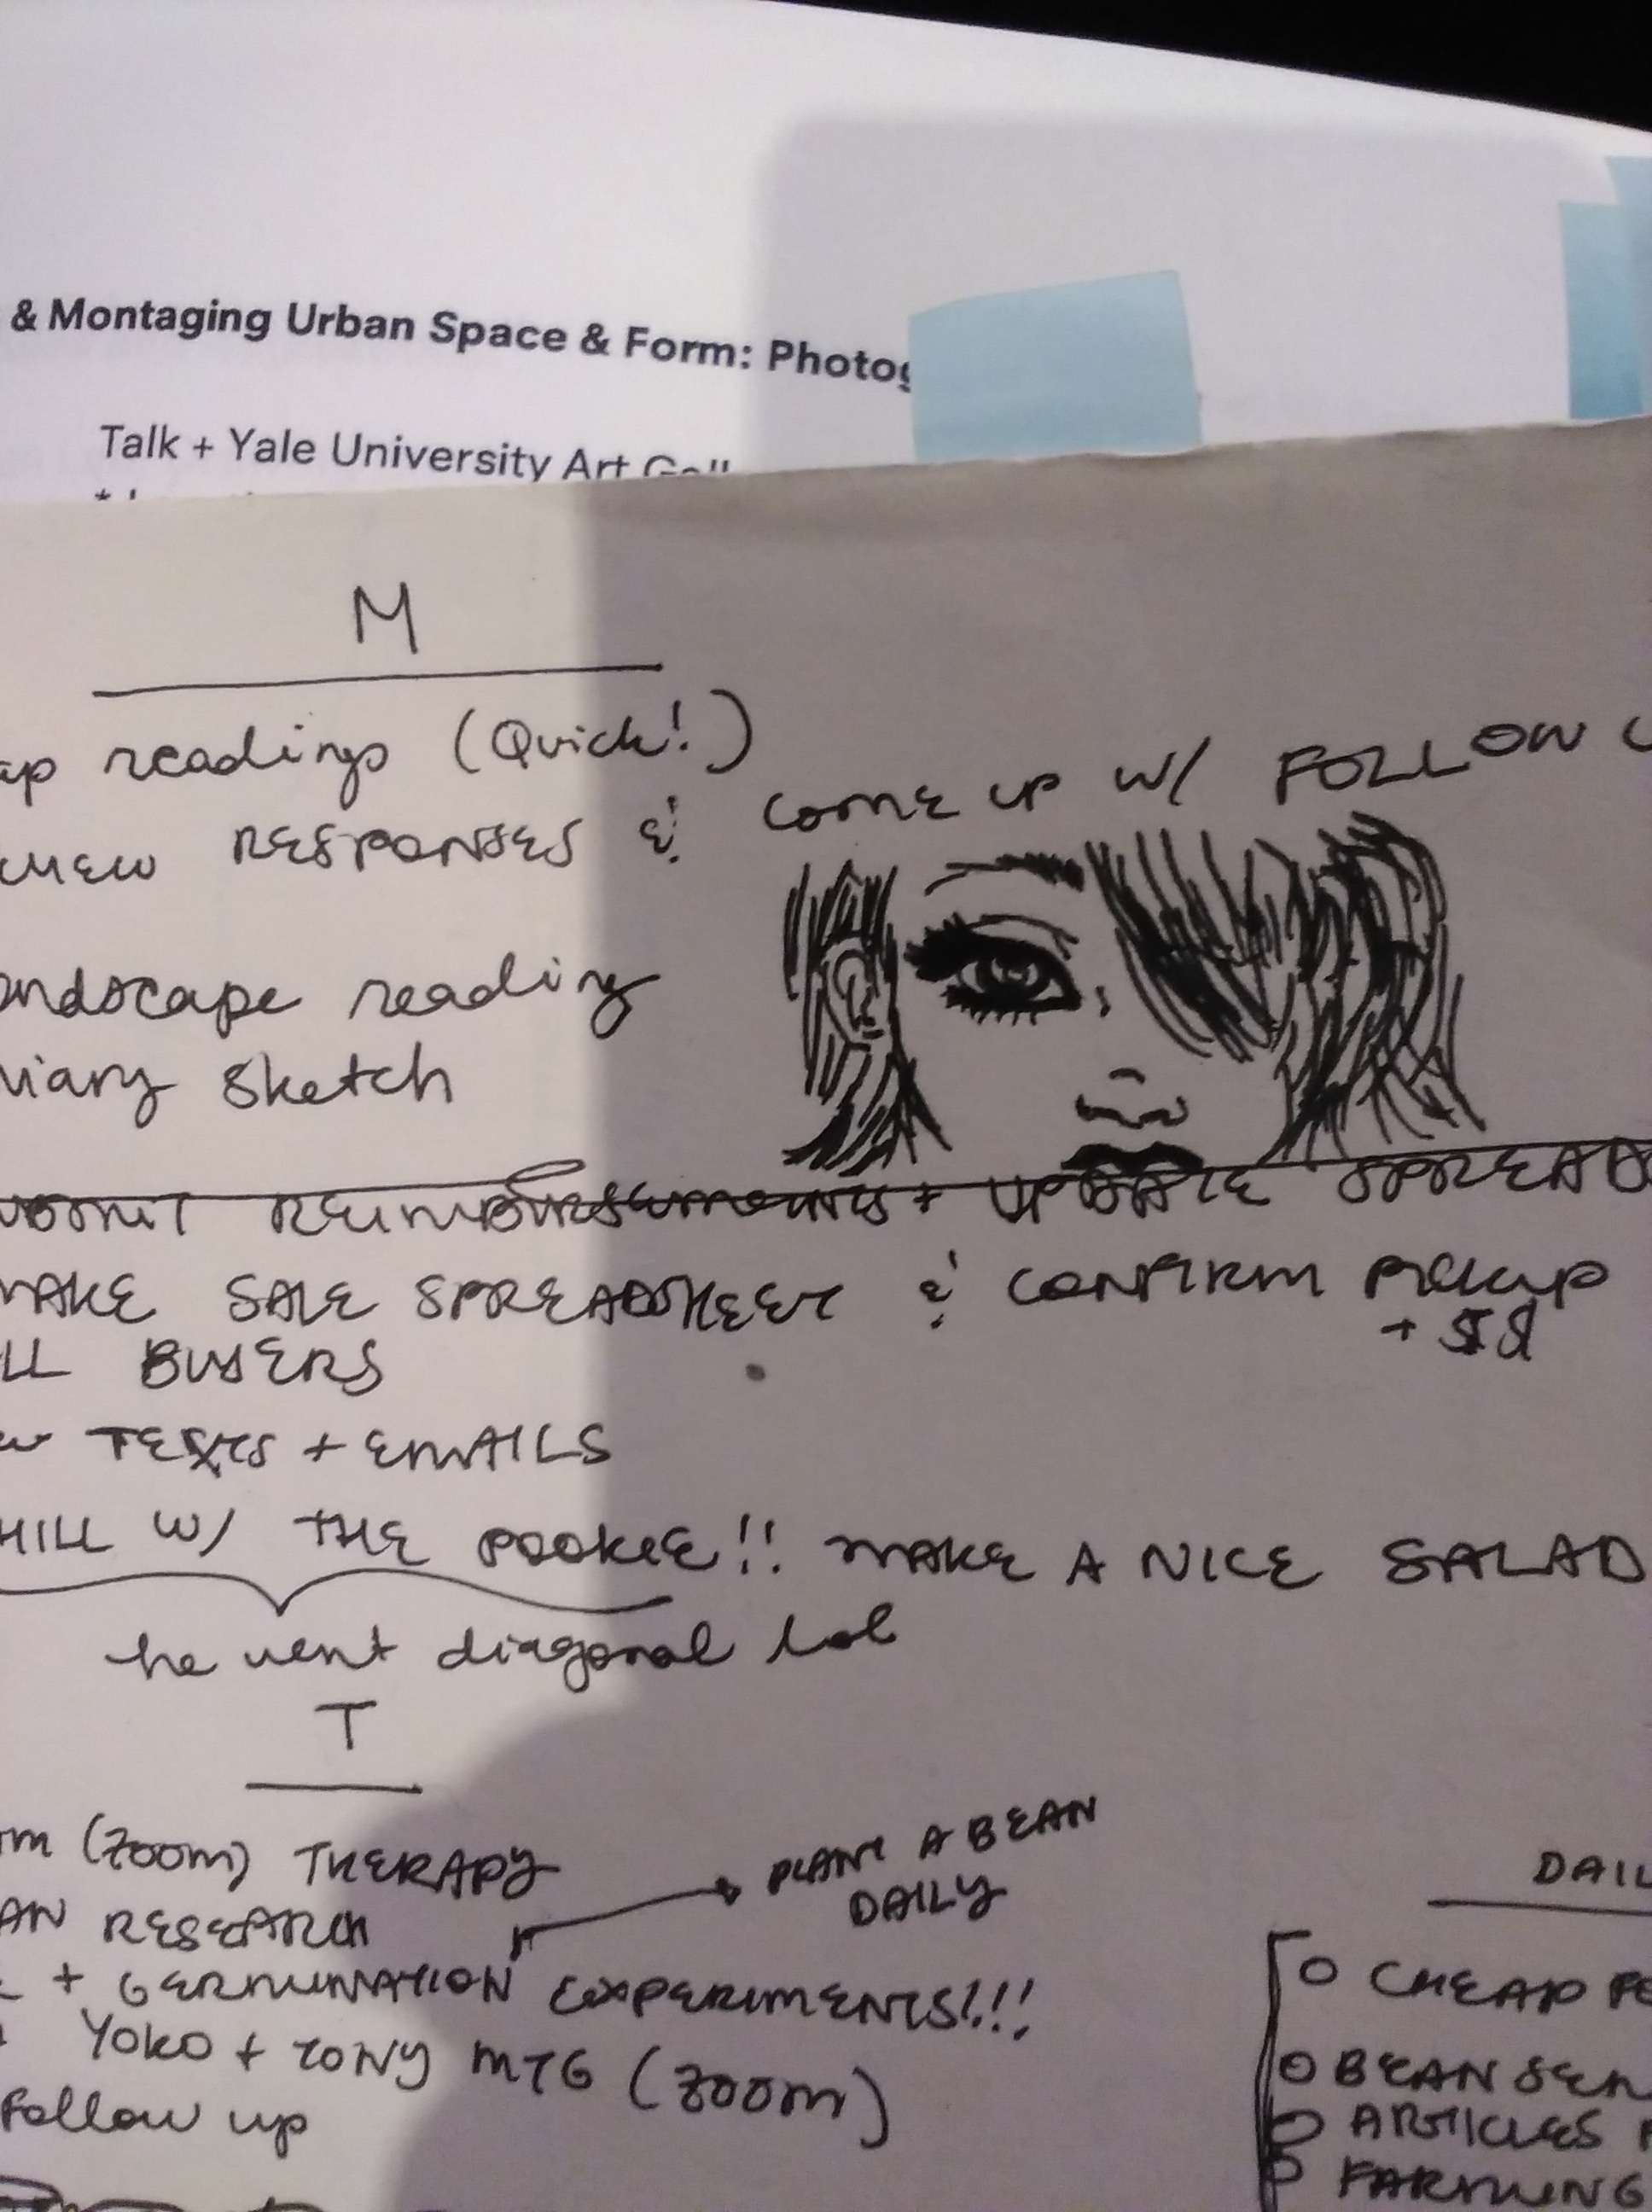 & Montaging Urban Space & Form: Photog
Talk + Yale University Art Gall
M
ap readings (Quick!)
RESPONSES & COME UP W/ FOLLOW U
andscape reading
sketch
REIMBURSEMENTS + UPDATE SPREADS
MAKE SALE SPREADSHEET & CONFIRM PICKUP
LL BUYERS
w TEXTS + EMAILS
HILL W/ THE POOKIE!! MAKE A NICE SALAD
he went diagonal lol
T
m (ZOOM) THERAPY
PLANT A BEAN
DAILY
AN RESEARCH
+ GERMINATION EXPERIMENTS!!!
YOKO + TONY MTG (ZOOM)
Follow up
DAIL
CHEAP
BEAN
ARTICLES
FARMING